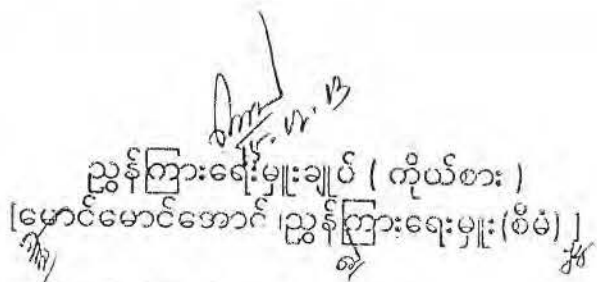 ညွှန်ကြားရေးမှူးချုပ် ( ကိုယ်စား )
[မောင်မောင်အောင် ၊ညွှန်ကြားရေးမှူး(စီမံ) ]